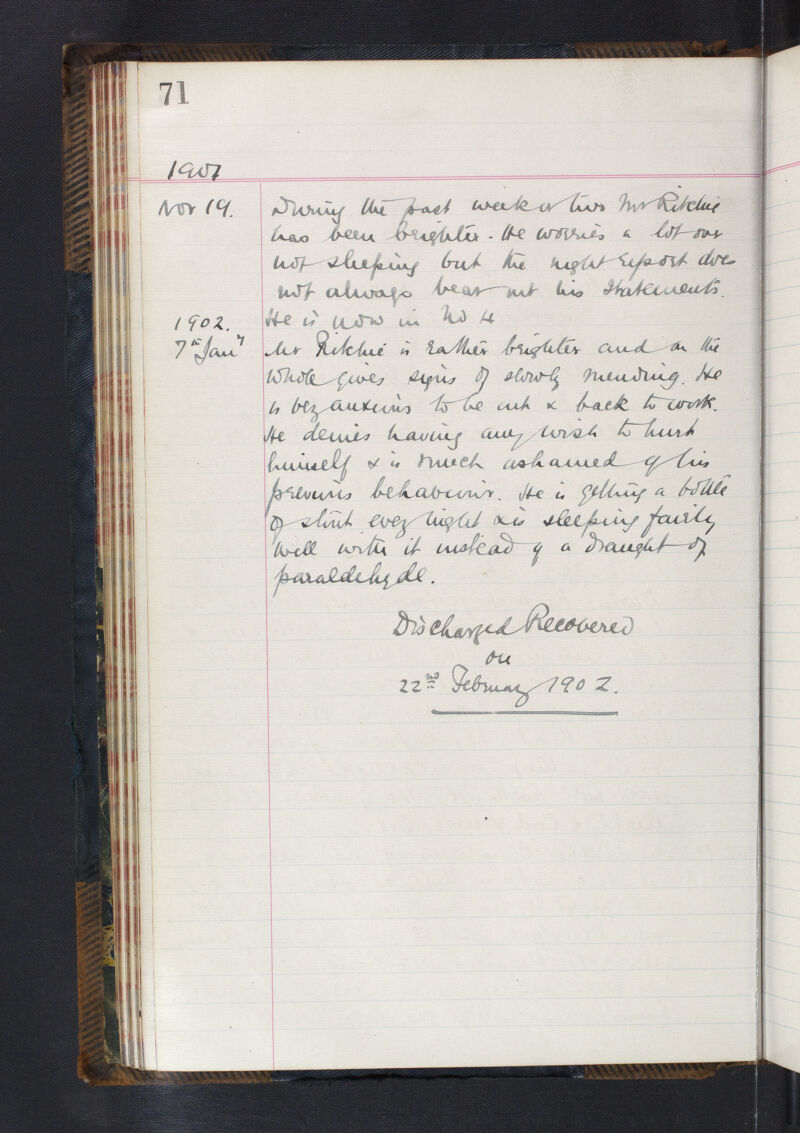 71
1901
Nov 19. During the past week or two Mr Ritchie
has been brighter. He worries a lot over
not sleeping but the night report does
not always bear out his statements.
1902. He is now in No 4
7th Jany Mr Ritchie is rather brighter and on the
whole gives signs of slowly mending. He
is very anxious to be out & back to work.
He denies having any wish to hurt
himself & is much ashamed of his
previous behaviour. He is getting a bottle
of stout every night & is sleeping fairly
well with it instead of a draught of
paraldehyde.
Discharged Recovered
on
22nd February 1902.